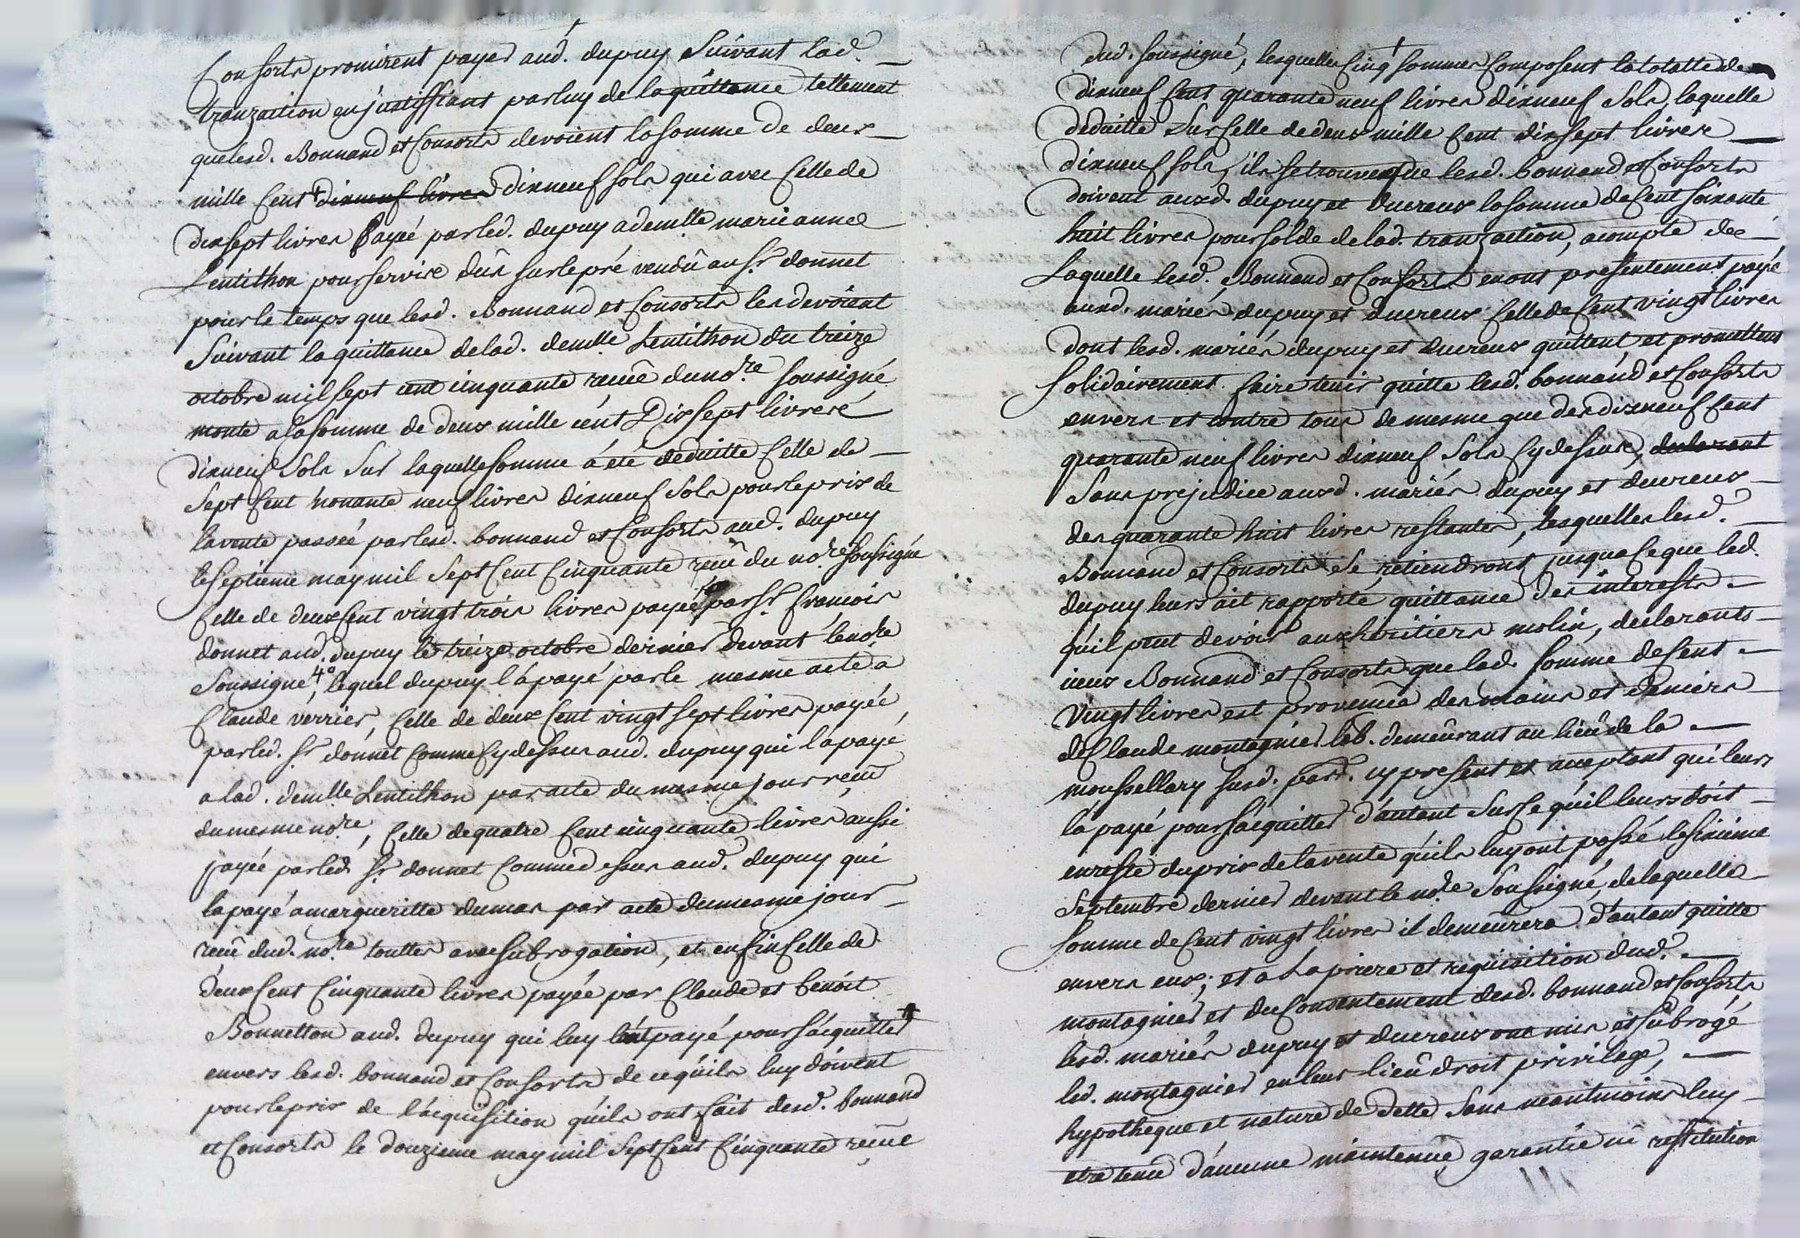 Consorts promirent payer aud. dupuy Suivant lad.
tranzaition en justiffiant par luy de la quittance tellement
que lesd. Bonnand et Consorts devoient la somme de deux
mille Cent dixneuf livres dixneuf sols qui avec Celle de
Dixsept livres payée par led. dupuy a demlle marie anne
Lentithon pour servire dûs sur le pré vendû au Sr. donnet
pour le temps que lesd. Bonnand et Consorts les devoient
Suivant la quittance de lad. demlle Lentithon du treize
octobre mil sept cent cinquante receüe du nore soussigné
monte a la somme de deux mille cent Dixsept livres
dixneuf Sols Sur laquelle somme a été deduitte Celle de
Sept Cent nonante neuf livres dixneuf Sols pour le prix de
la vente passée par lesd. bonnand et Consorts aud. dupuy
le septieme may mil Sept Cent Cinquante receüe du nore soussigné
Celle de deux Cent vingt trois livres payée par Sr. francois
donnet aud. dupuy le treize octobre dernier devant le nore
Soussigné, lequel dupuy l'a payé par le mesme acte a
Claude verrier, Celle de deux Cent vingt sept livres payée
par led. Sr donnet comme Cy dessus aud. dupuy qui l'a payé
a lad. demlle Lentithon par acte du mesme jour receu
du mesme nore, Celle de quatre Cent cinquante livres aussi
payée par led. Sr donnet comme dessus aud. dupuy qui
la payé a margueritte dumas par acte du mesme jour
receü dud. nore touttes avec subrogation, et enfin Celle de
deux Cent Cinquante livres payée par Claude et benoit
Bonnetton aud. dupuy qui luy l'ont payé pour s'acquitter
envers lesd. bonnand et Consorts de ce qu'ils luy doivent
pour le prix de l'acquisition qu'ils ont fait desd. bonnand
et Consorts le douzieme may mil Sept Cent Cinquante receüe
dud. soussigné, lesquelles Cinq sommes Composent la totalitte de
dixneuf Cent quarante neuf livres dixneuf Sols, laquelle
deduitte Sur Celle de deux mille Cent dixsept livres
dixneuf sols, il se trouve que lesd. bonnand et Consorts
doivent auxd. dupuy et ducreux la somme de Cent soixante
huit livres pour solde de lad. tranzaction, acompte de
Laquelle lesd. Bonnand et Consorts en ont presentement payé
auxd. mariés dupuy et ducreux Celle de Cent vingt livres
dont lesd. mariés dupuy et ducreux quittent et promettent
Solidairement faire tenir quitte lesd. bonnand et Consorts
envers et contre tous de mesme que des dixneuf Cent
quarante neuf livres dixneuf Sols Cy dessus, declarant
Sans prejudice auxd. mariés dupuy et ducreux
des quarante huit livres restantes, lesquelles lesd.
Bonnand et Consorts Se retiendront jusqua Ce que led.
dupuy leurs ait rapporté quittance des interests
qu'il peut devoir aux heritiers molin, declarants
iceux Bonnand et Consorts que lad. somme de Cent
Vingt livres est provenüe des mains et deniers
de Claude montagnier lab. demeurant au lieü de la
moussellary susd. parr. cy present et acceptant qui leurs
la payé pour s'acquitter d'autant Sur Ce qu'il leurs doit
en reste du prix de la vente qu'ils luy ont passé le sixieme
Septembre dernier devant le nore Soussigné, de laquelle
Somme de Cent vingt livres il demeurera d'autant quitte
envers eux; et a La priere et requisition dud.
montagnier et du Consentement desd. bonnand et Consorts
lesd. mariés dupuy et ducreux ont mis et subrogé
led. montagnier en leur lieü droit privilege,
hypotheque et nature de dette Sans neantmoins luy
etre tenu d'aucune maintenüe, garantie ni restitution